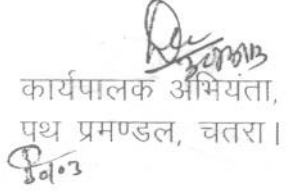 कार्यपालक अभियंता,
पथ प्रमण्डल, चतरा।